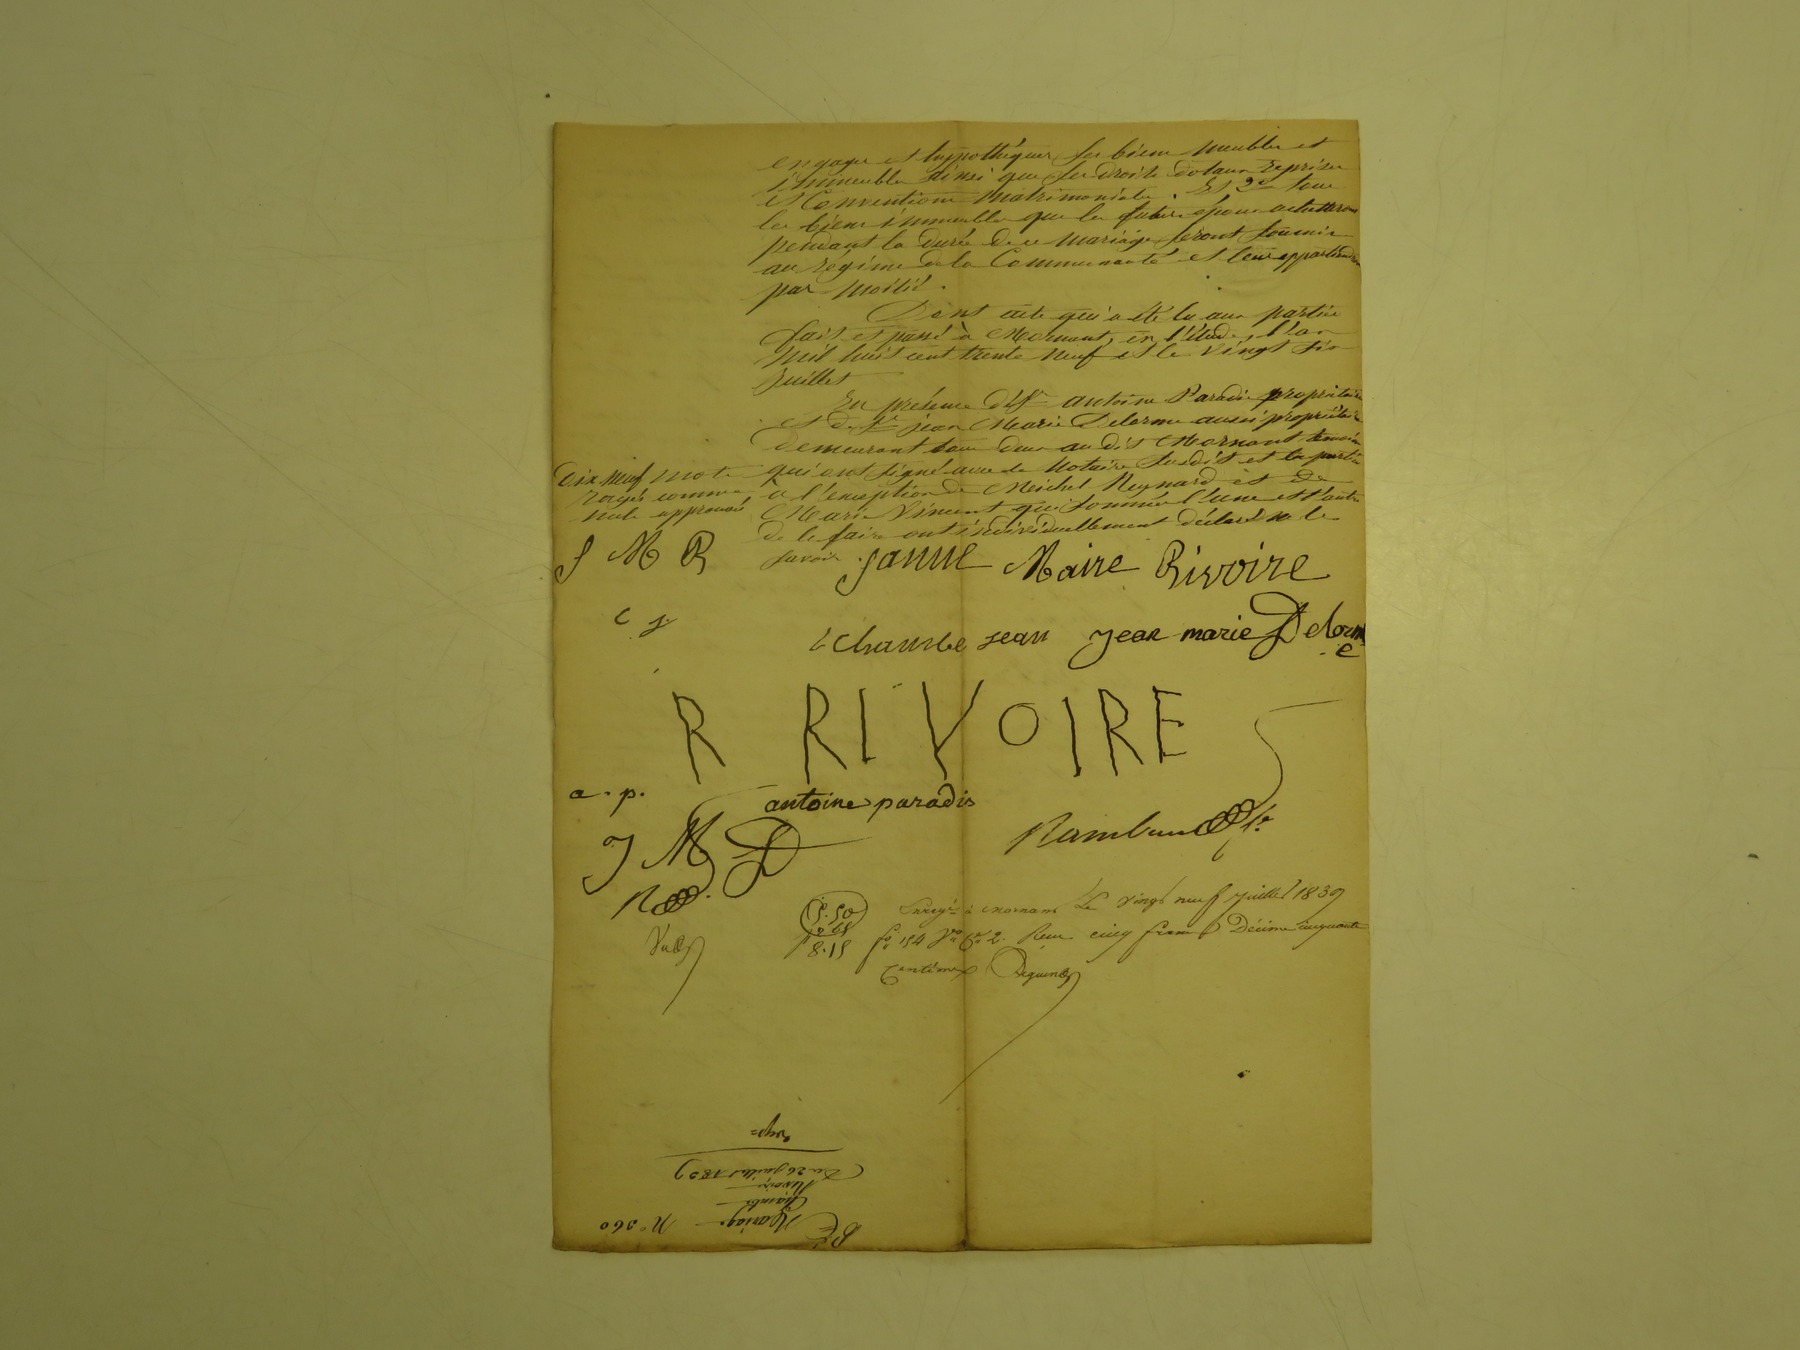 engager et hypothéquer ses biens meubles et
immeubles ainsi que ses droits dotaux reprises
et Conventions Matrimoniales. Et 3° tous
les biens immeubles que les futurs époux achetteront
pendant la durée de ce mariage seront soumis
au régime de la Communauté et leur appartiendron
par moitié.
Dont acte qui a été lu aux parties
fait et passé à Mornant, en l'étude, l'an
Mil huit cent trente neuf et le vingt six
juillet
En présence de Sr antoine Paradis propriétaire
et de Sr jean Marie Delorme aussi propriétaire
demeurant tous deux au dit Mornant témoins
qui ont signé avec le Notaire susdit et les parties
à l'exception de Michel Reynard et de
Marie Vincent qui sommés l'une et l'autre
de le faire ont individuellement déclaré ne le
savoir.
Dix neuf mots
rayés comme
nuls approuvés
J M R
janne Maire Rivoire
C j
Chambe jean jean marie Delorm
e
R RIVOIRE
a. p.
antoine paradis
J M D
R
5.50
Enregé à Mornant Le vingt neuf juillet 1839
fo 154 Vo Ce 2. Reçu cinq francs Décime cinquante
Centimes
8.15
Bé
Mariage N° 360
Chambe
Rivoire
Du 26 juillet 1839